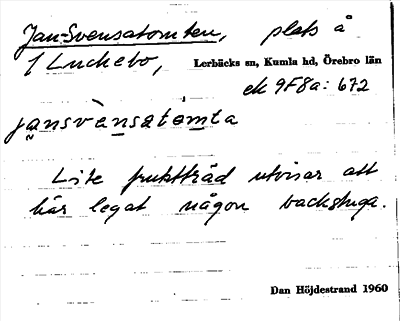 Jan-Svensatomten, plats å
1 Luckebo, Lerbäcks sn, Kumla hd, Örebro län
ek 9F8a: 672
jansvènsatómta
Lite fruktträd utvisar att
här legat någon backstuga.
Dan Höjdestrand 1960